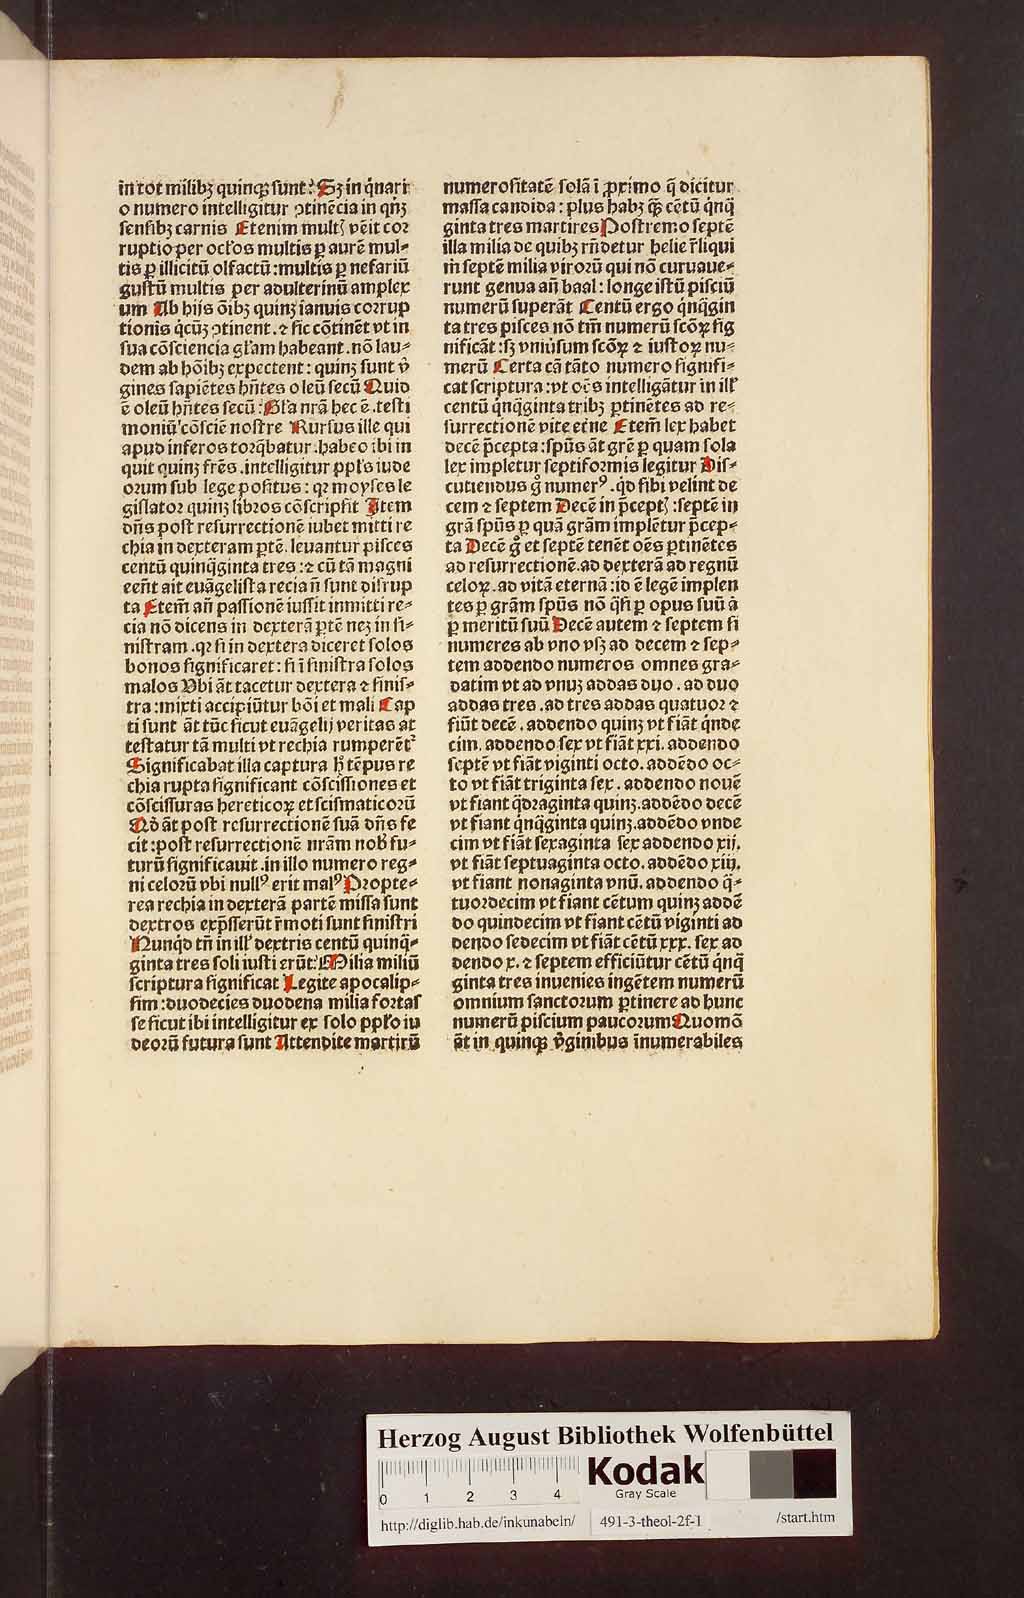 in tot milibꝫ quinqꝫ sunt? Sꝫ in q̇nari
o numero intelligitur ꝯtinēcia in qnꝫ
sensibꝫ carnis Etenim multꝭ vēit cor
ruptio per oclos multis ꝑ aurē mul⸗
tis ꝑ illicitū olfactū : multis ꝑ nefariū
gustū multis per adulterinū amplex
um Ab hijs ōibꝫ quinꝫ ianuis corrup
tionis q̇cūꝫ ꝯtinent . ⁊ sic cōtinēt vt in
sua cōsciencia gl̄am habeant . nō lau⸗
dem ab hōibꝫ expectent : quinꝫ sunt v̇
gines sapiētes hn̄tes oleū secū Quid
ē oleū hn̄tes secū : Gl̄a nr̄a hec ē . testi
moniū cōsciē nostre Rursus ille qui
apud inferos torq̄batur . habeo ibi in
quit quinꝫ fr̄es . intelligitur ppl̄s iude
orum sub lege positus : qꝛ moyses le
gislator quinꝫ libros cōscripsit Item
dn̄s post resurrectionē iubet mitti re
chia in dexteram ꝑtē . leuantur pisces
centū quinq̄ginta tres : ⁊ cū tā magni
een̄t ait euāgelista recia nō sunt disrup
ta Etem̄ an̄ passionē iussit inmitti re⸗
cia nō dicens in dexterā ꝑtē neꝫ in si⸗
nistram . qꝛ si in dextera diceret solos
bonos significaret : si ī sinistra solos
malos Vbi āt tacetur dextera ⁊ sinis⸗
tra : mixti accipiūtur bōi et mali Cap
ti sunt āt tūc sicut euāgelij veritas at
testatur tā multi vt rechia rumperēt᷑
Significabat illa captura hͦ tēpus re
chia rupta significant cōscissiones et
cōscissuras hereticoꝝ et scismaticorū
Qd̓ āt post resurrectionē suā dn̄s fe
cit : post resurrectionē nrām nob̓ fu⸗
turū significauit . in illo numero reg⸗
ni celorū vbi nullꝰ erit malꝰ Propte⸗
rea rechia in dexterā partē missa sunt
dextros exp̄sserūt r̄moti sunt sinistri
Nunqd̓ tn̄ in ill̓ dextris centū quinq̄⸗
ginta tres soli iusti erūt? Milia miliū
scriptura significat Legite apocalip⸗
sim : duodecies duodena milia fortas
se sicut ibi intelligitur ex solo ppl̄o iu
deorū futura sunt Attendite martirū
numerositatē solā ī ꝓximo q̄ dicitur
massa candida : plus habꝫ qꝫ cētū q̇nq̄
ginta tres martires Postremo septē
illa milia de quibꝫ rn̄detur helie r̄liqui
m̄ septē milia virorū qui nō curuaue⸗
runt genua an̄ baal : longe istū pisciū
numerū superāt Centū ergo q̇nq̄gin
ta tres pisces nō tm̄ numerū scōꝝ sig
nificāt : sꝫ vniu̇sum scōꝝ ⁊ iustoꝝ nu⸗
merū Certa cā tāto numero signifi⸗
cat scriptura : vt oēs intelligātur in ill̓
centū q̇nq̄ginta tribꝫ ꝑtinētes ad re⸗
surrectionē vite etne Etem̄ lex habet
decē p̄cepta : spūs āt grē ꝑ quam sola
lex impletur septiformis legitur Dis⸗
cutiendus gͦ numerꝰ . qd̓ sibi velint de
cem ⁊ septem Decē in p̄ceptꝭ : septē in
grā spūs ꝑ quā grām implētur p̄cep⸗
ta Decē gͦ et septē tenēt oēs ꝑtinētes
ad resurrectionē . ad dexterā ad regnū
celoꝝ . ad vitā eternā : id ē legē implen
tes ꝑ grām spūs nō q̄si ꝑ opus suū a
ꝑ meritū suū Decē autem ⁊ septem si
numeres ab vno vsꝫ ad decem ⁊ sep⸗
tem addendo numeros omnes gra⸗
datim vt ad vnuꝫ addas duo . ad duo
addas tres . ad tres addas quatuor ⁊
fiūt decē . addendo quinꝫ vt fiāt q̇nde
cim . addendo sex vt fiāt xxi . addendo
septē vt fiāt viginti octo . addēdo oc⸗
to vt fiāt triginta sex . addendo nouē
vt fiant q̄draginta quinꝫ . addēdo decē
vt fiant q̇nq̄ginta quinꝫ . addēdo vnde
cim vt fiāt sexaginta sex addendo xij .
vt fiāt septuaginta octo . addēdo xiij .
vt fiant nonaginta vnū . addendo q̄⸗
tuordecim vt fiant cētum quinꝫ addē
do quindecim vt fiant cētū viginti ad
dendo sedecim vt fiāt cētū xxx . sex ad
dendo x . ⁊ septem efficiūtur cētū q̇nq̄
ginta tres inuenies ingētem numerū
omnium sanctorum ꝑtinere ad hunc
numerū piscium paucorum Quomō
āt in quinqꝫ v̇ginibus īnumerabiles
Herzog August Bibliothek Wolfenbüttel
Kodak
Gray Scale
0 1 2 3 4
http://diglib.hab.de/inkunabeln/ 491-3-theol-2f-1 /start.htm